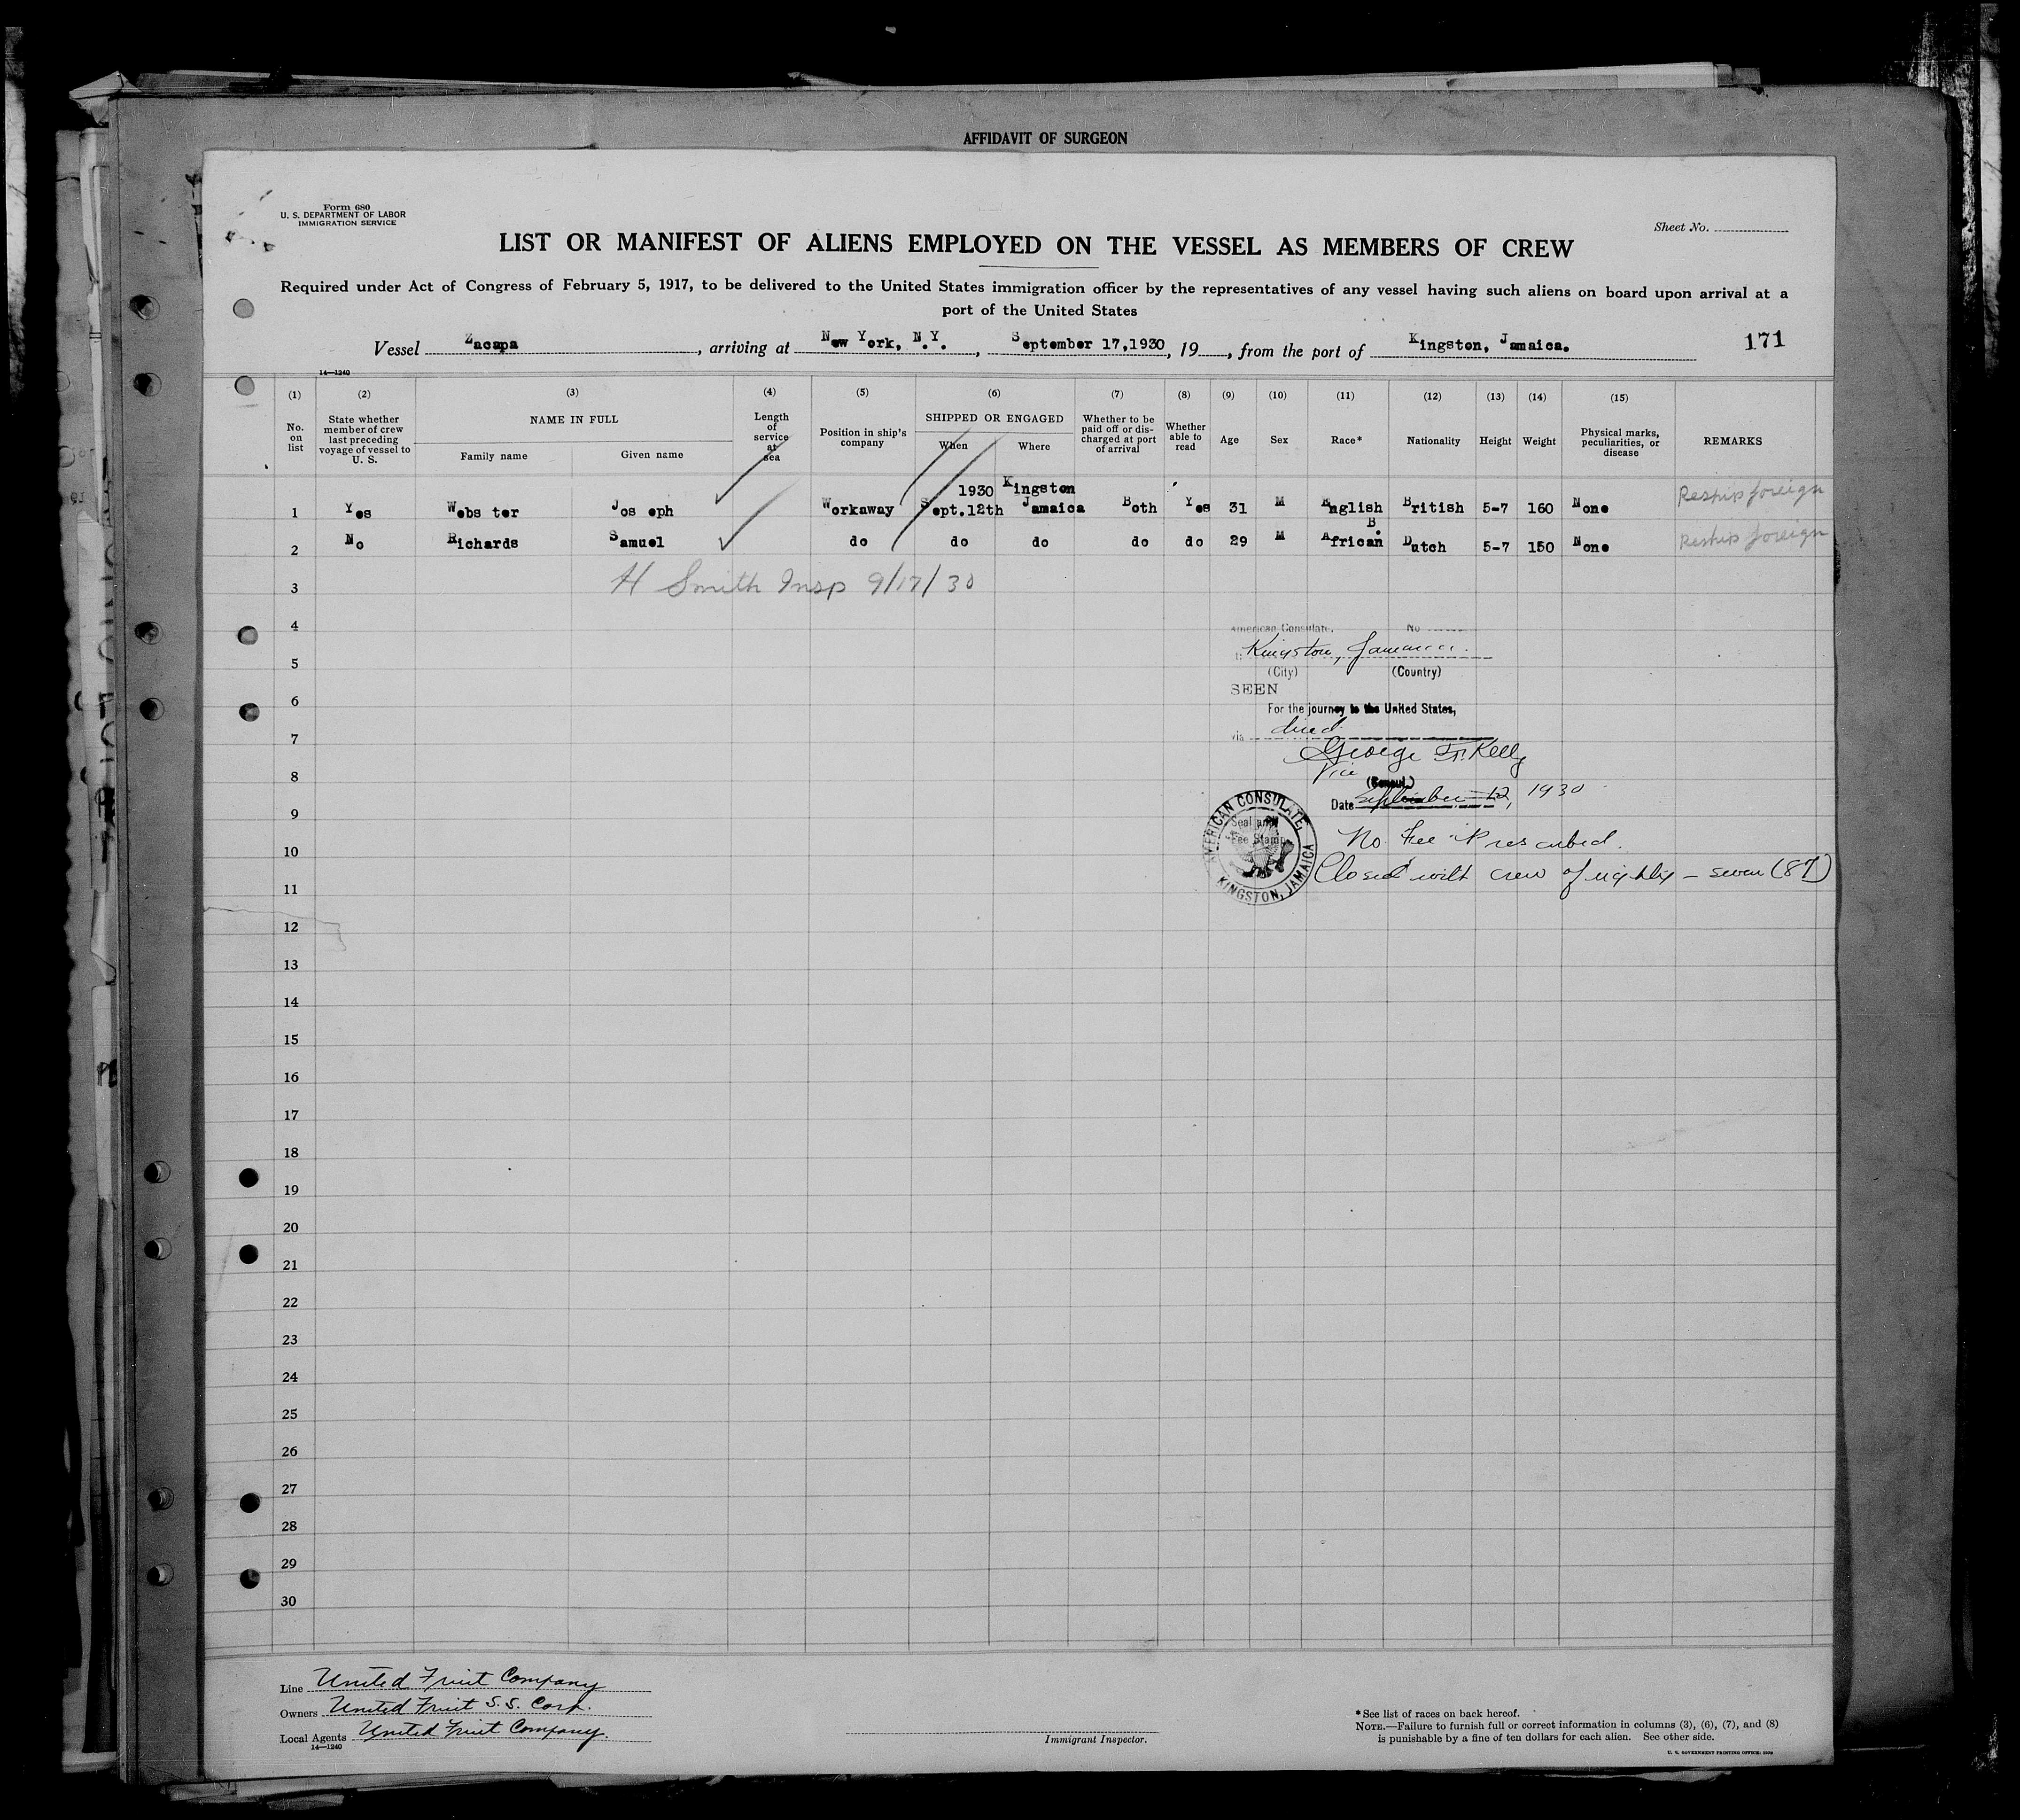 AFFIDAVIT OF SURGEON
Form 680
U. S. DEPARTMENT OF LABOR
IMMIGRATION SERVICE
Sheet No.
LIST OR MANIFEST OF ALIENS EMPLOYED ON THE VESSEL AS MEMBERS OF CREW
Required under Act of Congress of February 5, 1917, to be delivered to the United States immigration officer by the representatives of any vessel having such aliens on board upon arrival at a
port of the United States
Vessel Zacapa, arriving at New York, N.Y., September 17,1930, 19, from the port of Kingston, Jamaica. 171
14—1240
(1) (2) (3) (4) (5) (6) (7) (8) (9) (10) (11) (12) (13) (14) (15)
No. on list
State whether member of crew last preceding voyage of vessel to U. S.
NAME IN FULL
Family name Given name
Length of service at sea
Position in ship's company
SHIPPED OR ENGAGED
When Where
Whether to be paid off or discharged at port of arrival
Whether able to read
Age Sex Race* Nationality Height Weight
Physical marks, peculiarities, or disease
REMARKS
1930 Kingston
1 Yes Webs ter Jos eph Workaway Sept.12th Jamaica Both Yes 31 M English British 5-7 160 None Reship foreign
B.
2 No Richards Samuel do do do do do 29 M African Dutch 5-7 150 None Reship foreign
3 H Smith Insp 9/17/30
4
American Consulate, No
Kingston, Jamaica.
5
(City) (Country)
SEEN
6
For the journey to the United States,
7
via direct
George F. Kelly
Vice
8
(Consul.)
Date September 12, 1930
9
AMERICAN CONSULATE,
Seal and
Fee Stamp
KINGSTON, JAMAICA
No Fee Prescribed.
10
Closed with crew of eighty-seven (87)
11
12
13
14
15
16
17
18
19
20
21
22
23
24
25
26
27
28
29
30
Line United Fruit Company
Owners United Fruit S.S. Corp.
Local Agents United Fruit Company.
14—1240
Immigrant Inspector.
*See list of races on back hereof.
NOTE.—Failure to furnish full or correct information in columns (3), (6), (7), and (8)
is punishable by a fine of ten dollars for each alien. See other side.
U. S. GOVERNMENT PRINTING OFFICE: 1929